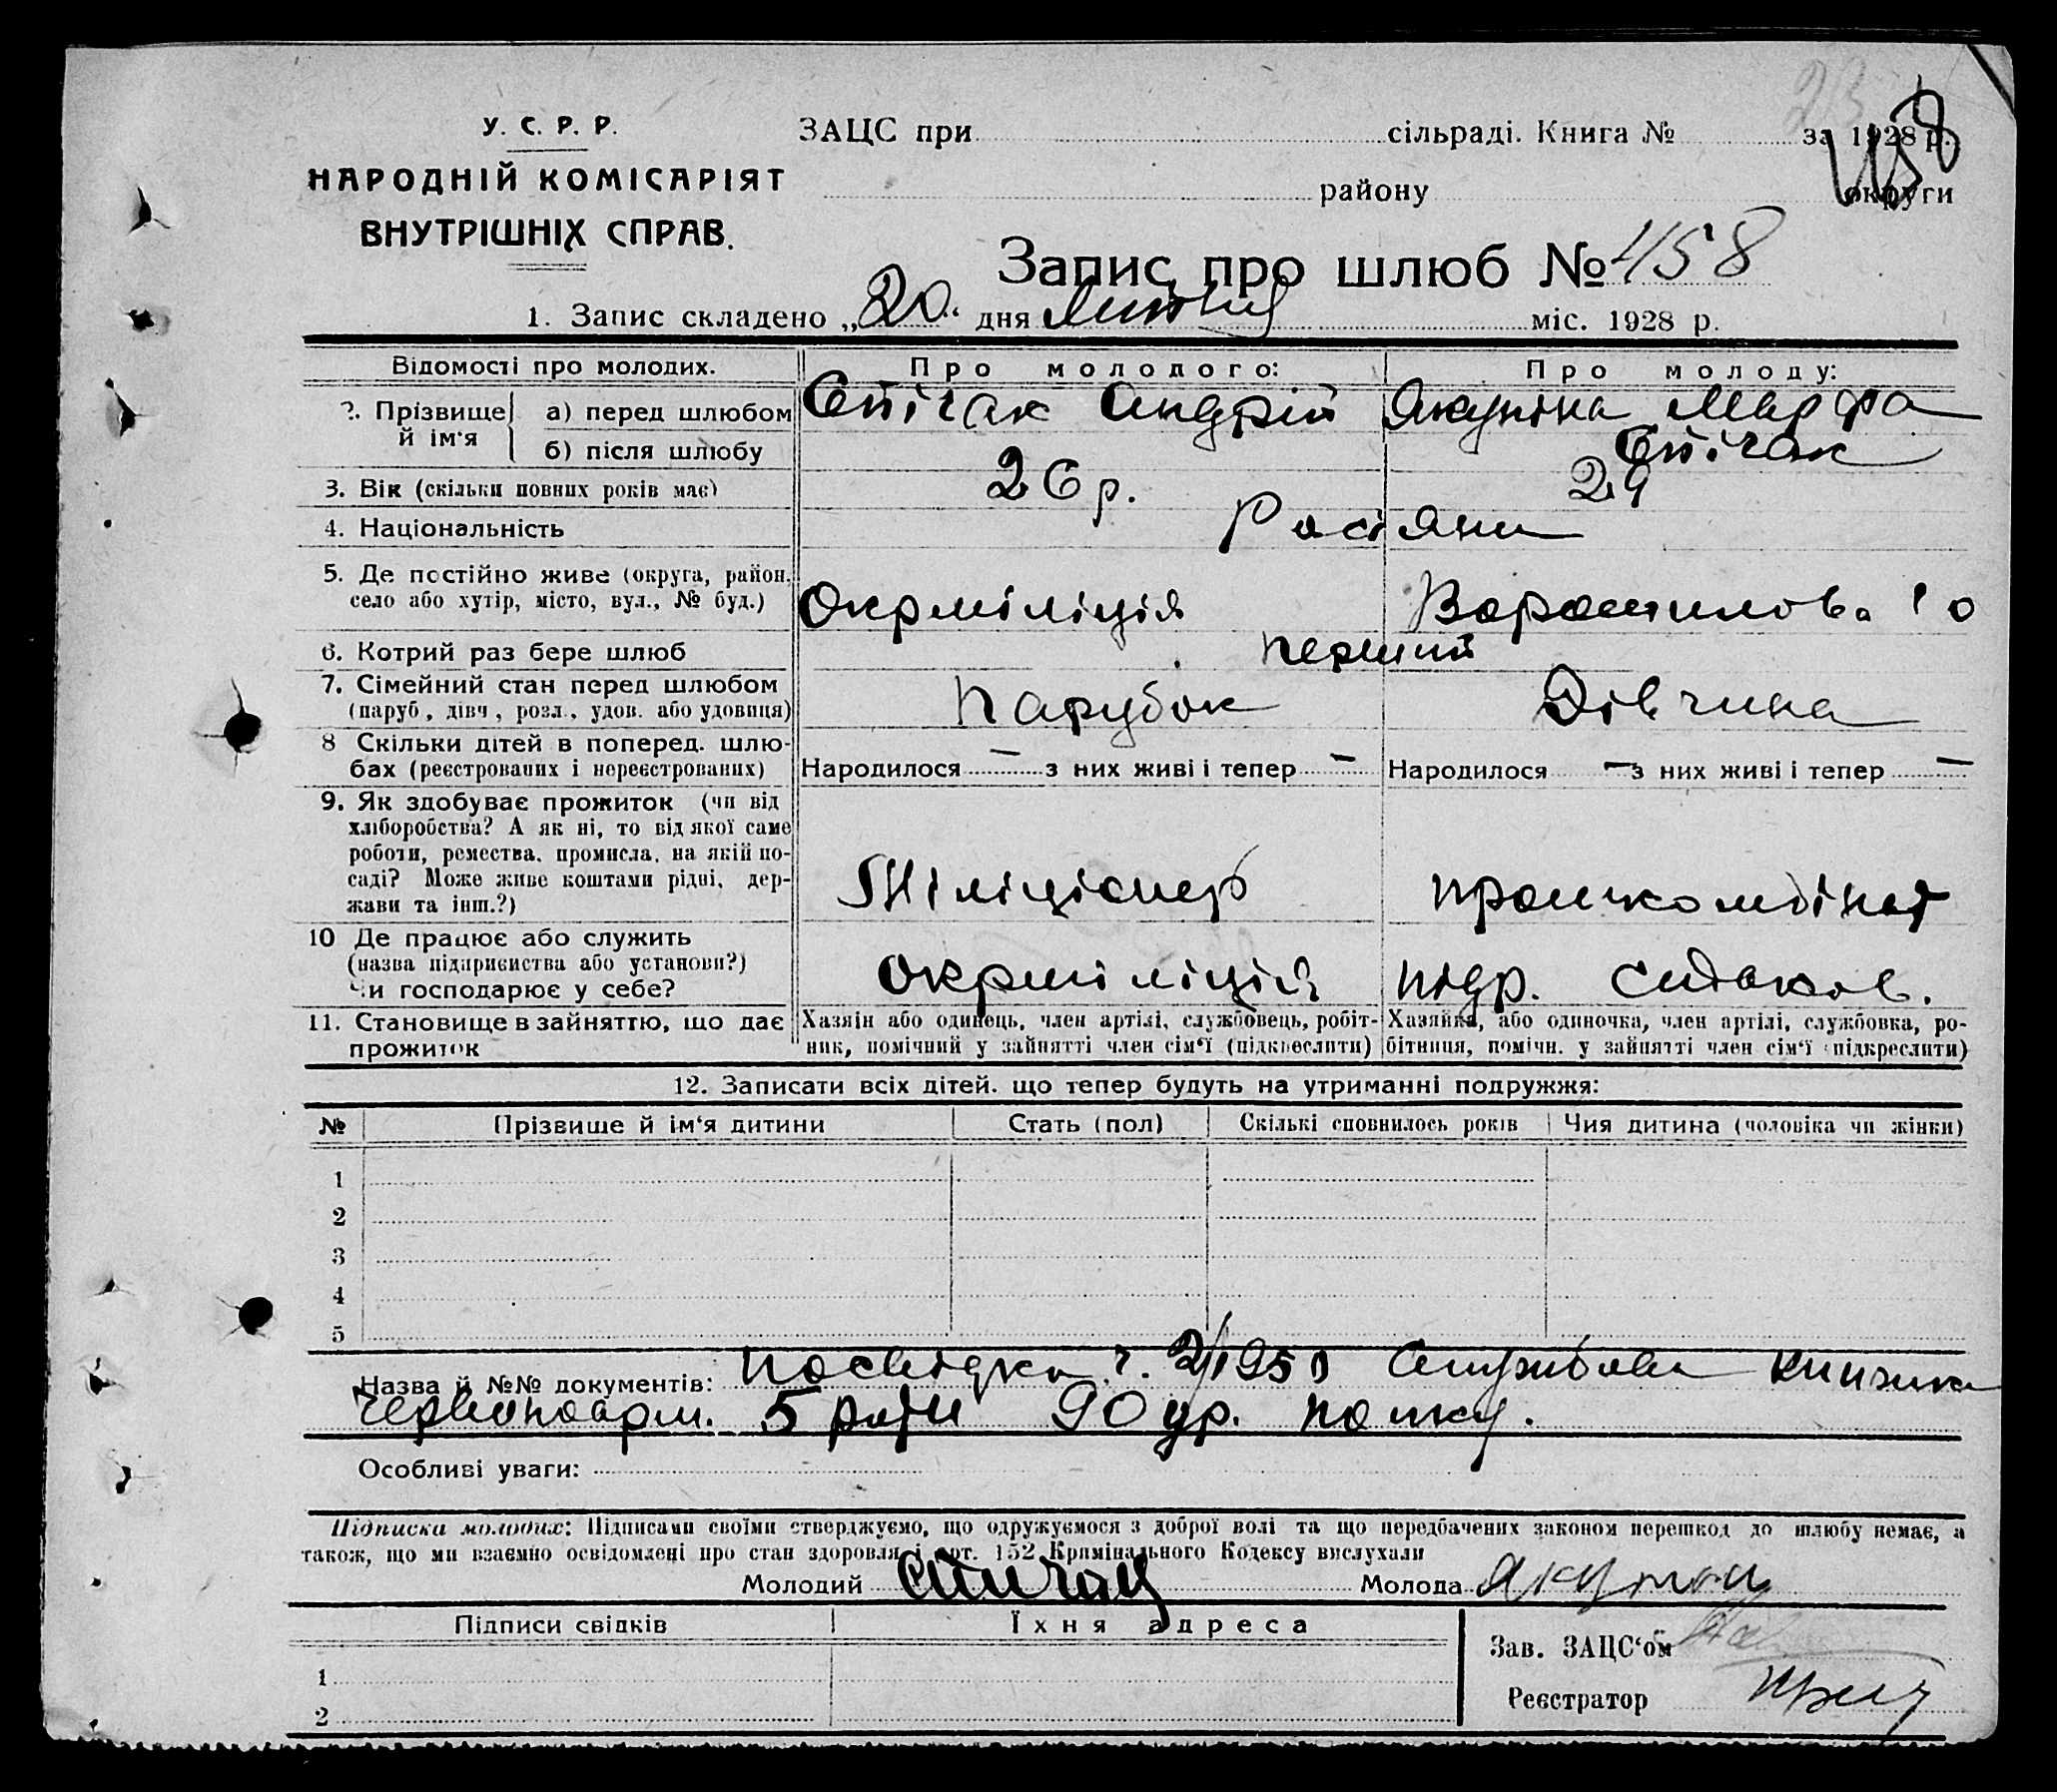 У. С. Р. Р.
НАРОДНІЙ КОМІСАРІЯТ
ВНУТРІШНІХ СПРАВ.
ЗАЦС при сільраді. Книга № за 1928 р.
району округи
Запис про шлюб № 458
1. Запис складено „20“ дня міс. 1928 р.
Відомості про молодих. Про молодого: Про молоду:
2. Прізвище й ім‘я а) перед шлюбом Спічак Андрій Якуніна Марфа
б) після шлюбу Спічак
3. Вік (скільки повних років має) 26 р. 29
4. Національність Росіяни
5. Де постійно живе (округа, район, село або хутір, місто, вул., № буд.) Окрміліція Ворошилова 10
6. Котрий раз бере шлюб перший
7. Сімейний стан перед шлюбом (паруб., дівч., розл., удов. або удовиця) Парубок Дівчина
8 Скільки дітей в поперед. шлюбах (реєстрованих і нереєстрованих) Народилося — з них живі і тепер — Народилося — з них живі і тепер —
9. Як здобуває прожиток (чи від
хліборобства? А як ні, то від якої саме
роботи, ремества, промисла, на якій по-
саді? Може живе коштами рідні, дер-
жави та інш.?) Міліціонер
10 Де працює або служить
(назва підприємства або установи?)
Чи господарює у себе? Окрміліція
11. Становище в зайняттю, що дає прожиток
Хазяін або одинець, член артілі, службовець, робіт-
ник, помічний у зайнятті член сім‘ї (підкреслити)
Хазяйка, або одиночка, член артілі, службовка, ро-
бітниця, помічн. у зайнятті член сім‘ї (підкреслити)
12. Записати всіх дітей. що тепер будуть на утриманні подружжя:
№ Прізвище й ім‘я дитини Стать (пол) Скількі сповнилось років Чия дитина (чоловіка чи жінки)
1
2
3
4
5
Назва й №№ документів: посвідка ч. Службова книжка
червоноарм. 5 роти 90 полку.
Особливі уваги:
Підписка молодих: Підписами своїми стверджуємо, що одружуємося з доброї волі та що передбачених законом перешкод до шлюбу немає, а
також, що ми взаємно освідомлені про стан здоровля і арт. 152 Крамінального Кодексу вислухали
Молодий Спичак Молода
Підписи свідків Їхня адреса
1
2
Зав. ЗАЦС‘ом
Реєстратор